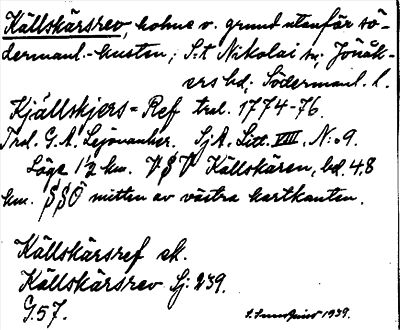 Källskärsrev, holme v. grund utanför sö-
dermanl.-kusten; S:t Nikolai sn; Jönåk-
ers hd; Södermanl. l.
Kjällskjers-Ref tral. 1774-76.
Trol. G. A. Lejonanker. SjA, Litt. VIII, N:o 9.
Läge 1/2 km. VSV Källskären, bd. 4,8
km. SSÖ mitten av västra kartkanten.
Källskärsref ek.
Källskärsrev Sj: 239.
G.57.
1939.